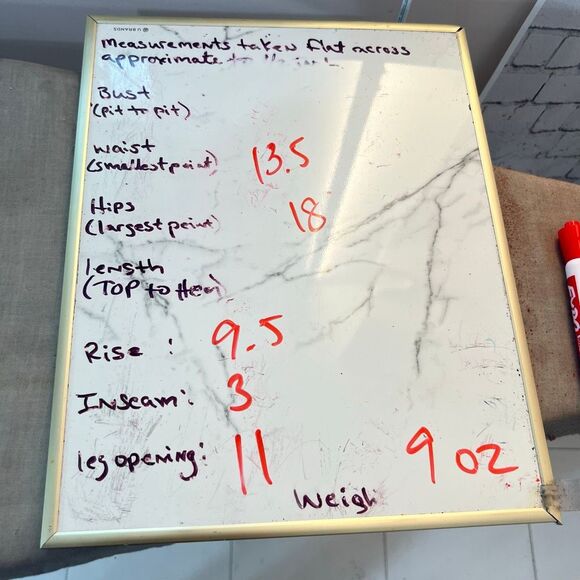 U BRANDS
measurements taken flat across
approximate to
Bust
(pit to pit)
waist
(smallest point) 13.5
Hips
(largest point) 18
length
(TOP to Hem)
Rise : 9.5
Inseam: 3
leg opening: 11
9 oz
Weigh
EXPO